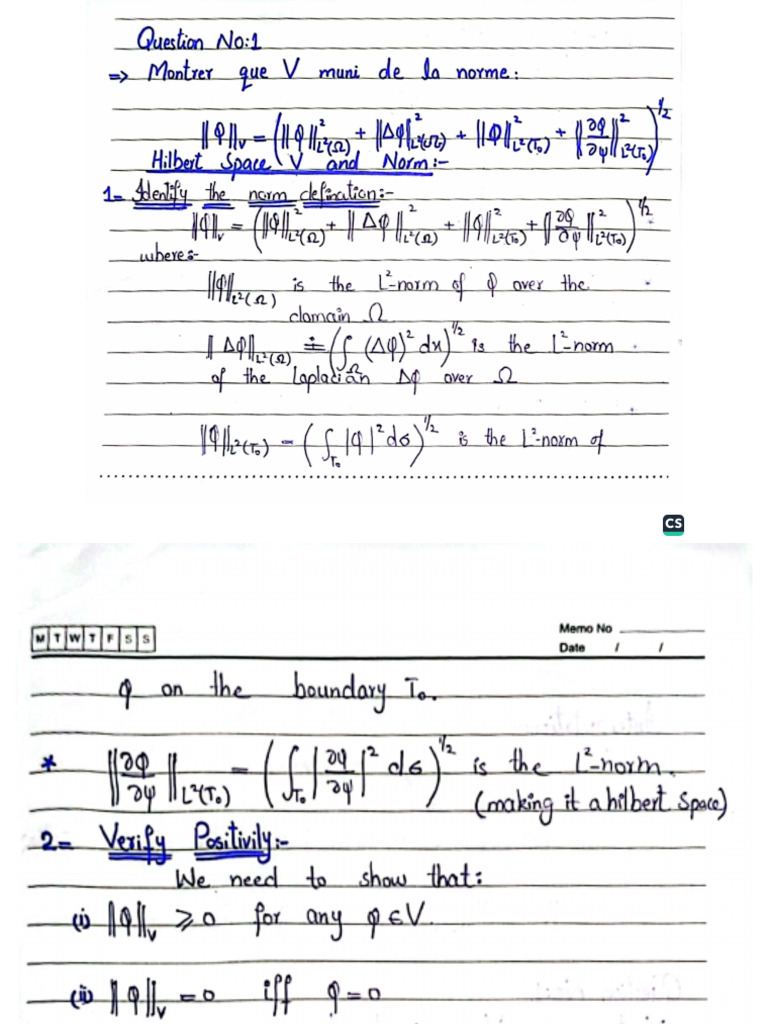 Question No:1
=> Montrer que V muni de la norme:
||φ||_V = (||φ||²_L²(Ω) + ||Δφ||²_L²(Ω) + ||φ||²_L²(T₀) + ||∂φ/∂ψ||²_L²(T₀))^1/2
Hilbert Space V and Norm:-
1= Identify the norm defination:-
||φ||_V = (||φ||²_L²(Ω) + ||Δφ||²_L²(Ω) + ||φ||²_L²(T₀) + ||∂φ/∂ψ||²_L²(T₀))^1/2
where:-
||φ||_L²(Ω) is the L²-norm of φ over the
domain Ω
||Δφ||_L²(Ω) = (∫_Ω (Δφ)² dx)^1/2 is the L²-norm
of the Laplacian Δφ over Ω
||φ||_L²(T₀) - (∫_T₀ |φ|² dσ)^1/2 is the L²-norm of
CS
M T W T F S S
Memo No
Date / /
φ on the boundary T₀.
* ||∂φ/∂ψ||_L²(T₀) = (∫_T₀ |∂φ/∂ψ|² dσ)^1/2 is the L²-norm.
(making it a hilbert Space)
2= Verify Positivily:-
We need to show that:
(i) ||φ||_V ⩾ 0 for any φ ∈ V.
(ii) ||φ||_V = 0 iff φ = 0